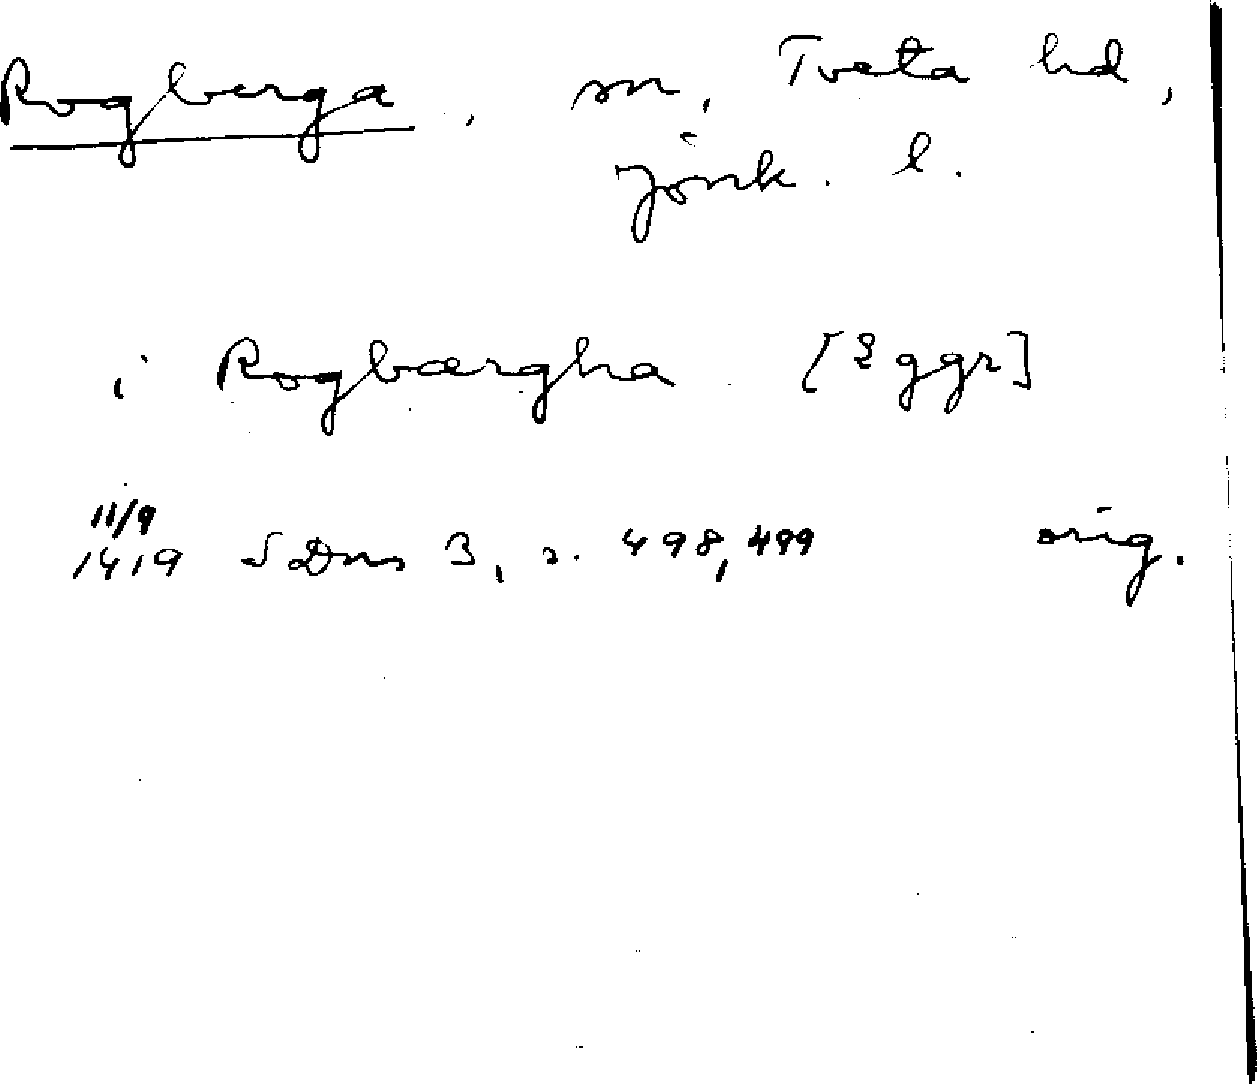 Rogberga, sn, Tveta hd,
Jönk. l.
i Rogbærgha [2 ggr]
11/9
1419 SDns 3, s. 498, 499 orig.